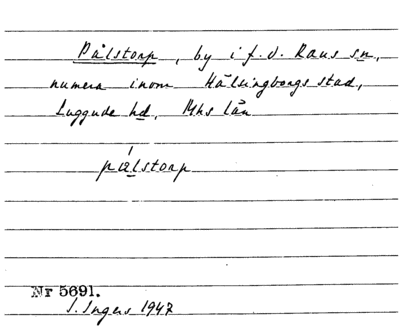 Pålstorp, by i f.d. Raus sn,
numera inom Hälsingborgs stad,
Luggude hd, Mhs län
pålstorp
Nr 5691.
I. Ingers 1947